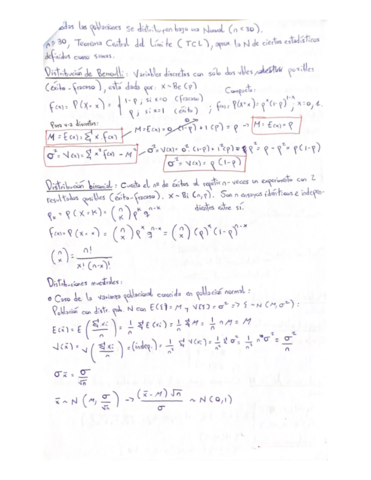 las poblaciones se distribuyen bajo una Normal (n<30).
n>30, Teorema Central del Límite (TCL), aprox la N de ciertos estadísticos
definidos como sumas.
Distribución de Bernoulli: Variables discretas con sólo dos posibles
(éxito-fracaso), está dada por: X~Be(p) Compacta:
f(x) = P(X=x) = { 1-p, si x=0 (fracaso) ; p, si x=1 (éxito) ; f(x) = P(X=x) = p^x (1-p)^{1-x}, x=0,1.
Para v.a discretas:
M = E(x) = Σ x f(x) → M = E(x) = 0·(1-p) + 1(p) = p → M = E(x) = p
σ² = V(x) = Σ x² f(x) - M² → σ² = V(x) = 0²·(1-p) + 1²(p) - p² = p - p² = p(1-p)
σ² = V(x) = p(1-p)
Distribución binomial: Cuenta el nº de éxitos al repetir n-veces un experimento con 2
resultados posibles (éxito-fracaso). X~Bi(n,p). Son ensayos idénticos e indepen-
dientes entre sí.
p_x = P(X=x) = (n x) p^x q^{n-x}
f(x) = P(X=x) = (n x) p^x q^{n-x} = (n x) (p)^x (1-p)^{n-x}
(n x) = n! / x!(n-x)!
Distribuciones muestrales:
Caso de la varianza poblacional conocida en población normal:
Población con distr. pobl. N con E(ξ) = M y V(ξ) = σ² => ξ ~ N(M, σ²):
E(x̄) = E(Σ xi / n) = 1/n Σ E(xi) = 1/n Σ M = 1/n n M = M
V(x̄) = V(Σ xi / n) = (indep.) = 1/n² Σ V(xi) = 1/n² Σ σ² = 1/n² n σ² = σ²/n
σ_x̄ = σ/√n
x̄ ~ N(M, σ/√n) → (x̄ - M)√n / σ ~ N(0,1)